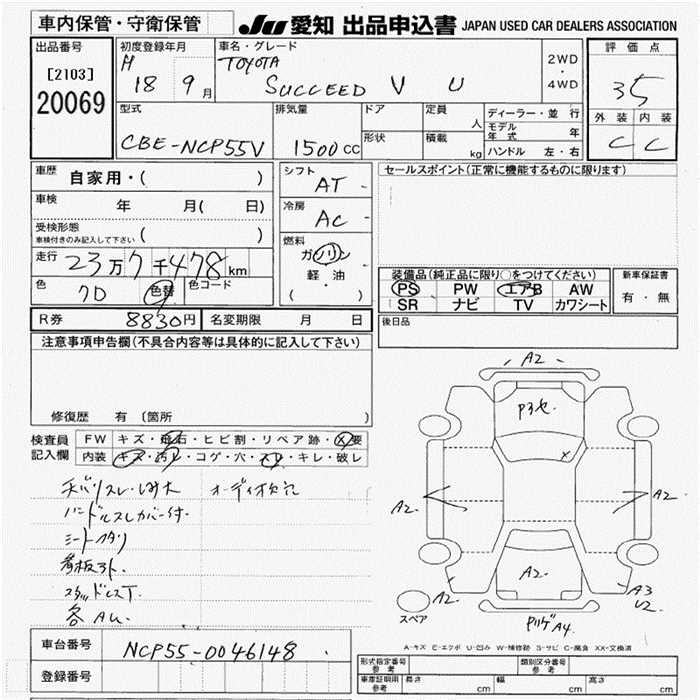 車内保管・守衛保管
JU 愛知 出品申込書 JAPAN USED CAR DEALERS ASSOCIATION
出品番号
[2103]
20069
初度登録年月
H 18 9 月
車名・グレード
TOYOTA
SUCCEED V U
2WD
・
4WD
評価点
35
外装 内装
C C
型式
CBE-NCP55V
排気量
1500 CC
ドア
形状
定員 人
積載 kg
ディーラー・並行
モデル年式 年
ハンドル 左・右
車歴 自家用・( )
車検 年 月( 日)
受検形態
車検付きのみ記入して下さい ( )
走行 23万7千478 km
色 色替 色コード
シフト
AT
冷房
AC
燃料
ガソリン
軽油
( ・ )
セールスポイント(正常に機能するものに限ります)
装備品(純正品に限り○をつけてください)
PS PW エアB AW
SR ナビ TV カワシート
新車保証書
有・無
R券 8830円 名変期限 月 日
後日品
注意事項申告欄(不具合内容等は具体的に記入して下さい)
修復歴 有〔箇所 〕
検査員記入欄
FW キズ・飛石・ヒビ割・リペア跡・X要
内装 キズ・汚れ・コゲ・穴・スレ・キレ・破レ
ハンドルスレカバー付
看板ﾖﾄ.
スタッドレスT.
各AU.
A2
A2.
A2.
A2.
A2.
A3
U2
A4
スペア
A-キズ E-エクボ U-凹み W-補修跡 S-サビ C-腐食 XX-交換済
車台番号 NCP55-0046148
登録番号
形式指定番号 参考
類別区分番号 参考
車庫証明用 参考 長さ cm 幅 cm 高さ cm